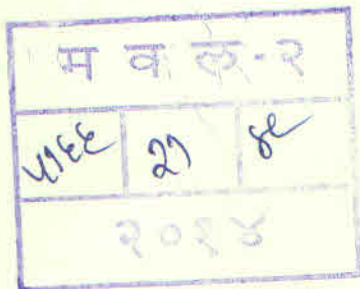 म व ल-२
५१६६ २१ ४९
२०१४